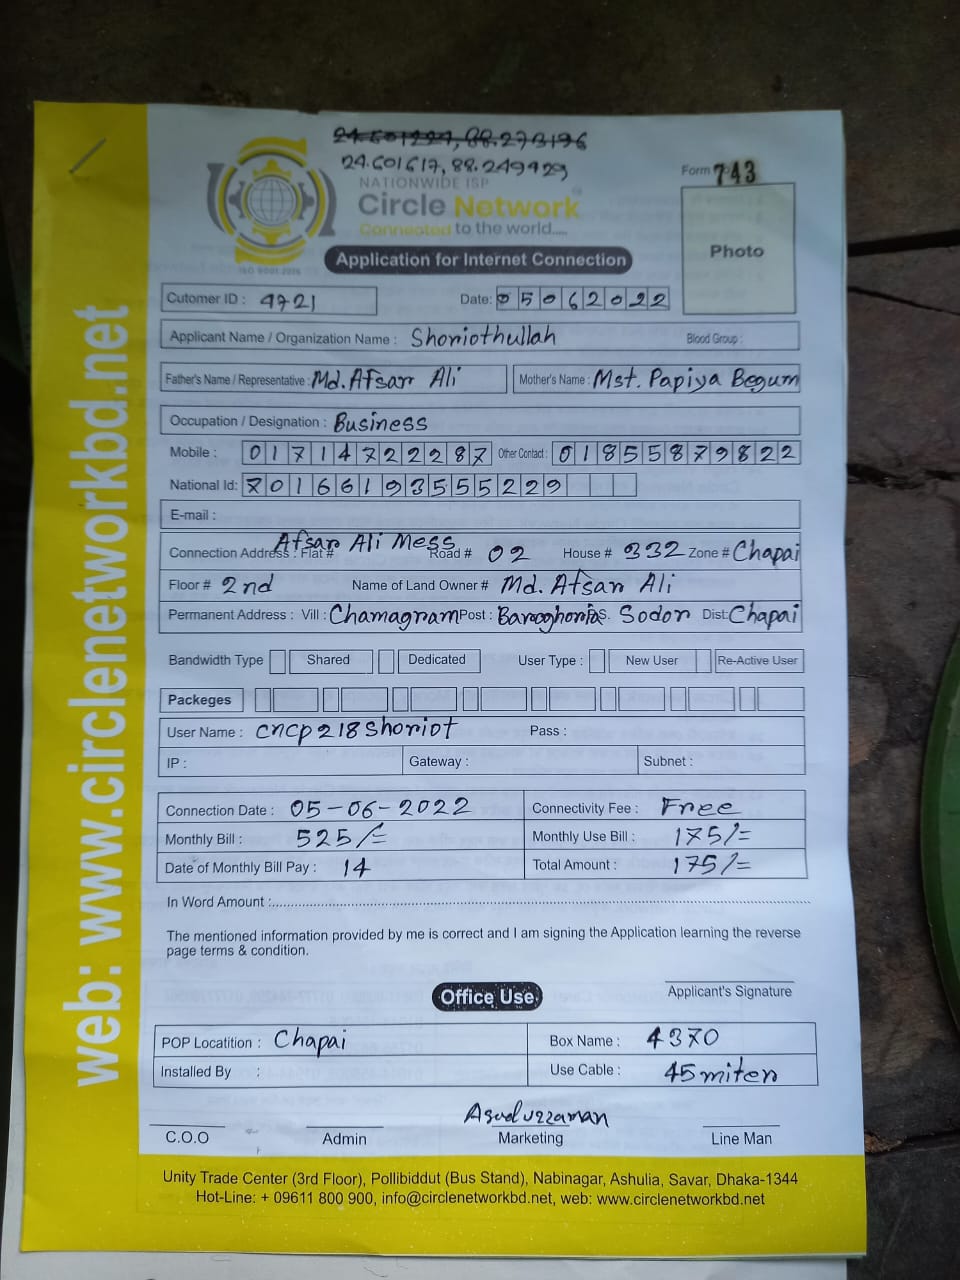 24.601224, 88.273196
24.601617, 88.249429
NATIONWIDE ISP
Circle Network
Connected to the world.....
ISO 9001:2015
Form 743
Photo
Application for Internet Connection
Cutomer ID : 4721
Date: 05062022
Applicant Name / Organization Name : Shoriothullah Blood Group :
Father's Name / Representative : Md. Afsar Ali Mother's Name : Mst. Papiya Begum
Occupation / Designation : Business
Mobile : 01714722287 Other Contact : 01855879822
National Id: 7016619355229
E-mail :
Connection Address : Flat # Afsar Ali Mess Road # 02 House # 332 Zone # Chapai
Floor # 2nd Name of Land Owner # Md. Afsar Ali
Permanent Address : Vill : Chamagram Post : Baroghoria P.S. Sodor Dist: Chapai
Bandwidth Type Shared Dedicated User Type : New User Re-Active User
Packeges
User Name : cncp218shoriot Pass :
IP : Gateway : Subnet :
Connection Date : 05-06-2022 Connectivity Fee : Free
Monthly Bill : 525/= Monthly Use Bill : 175/=
Date of Monthly Bill Pay : 14 Total Amount : 175/=
In Word Amount :
The mentioned information provided by me is correct and I am signing the Application learning the reverse
page terms & condition.
Applicant's Signature
Office Use
POP Locatition : Chapai Box Name : 4370
Installed By : Use Cable : 45 miter
Asaduzzaman
C.O.O Admin Marketing Line Man
Unity Trade Center (3rd Floor), Pollibiddut (Bus Stand), Nabinagar, Ashulia, Savar, Dhaka-1344
Hot-Line: + 09611 800 900, info@circlenetworkbd.net, web: www.circlenetworkbd.net
web: www.circlenetworkbd.net